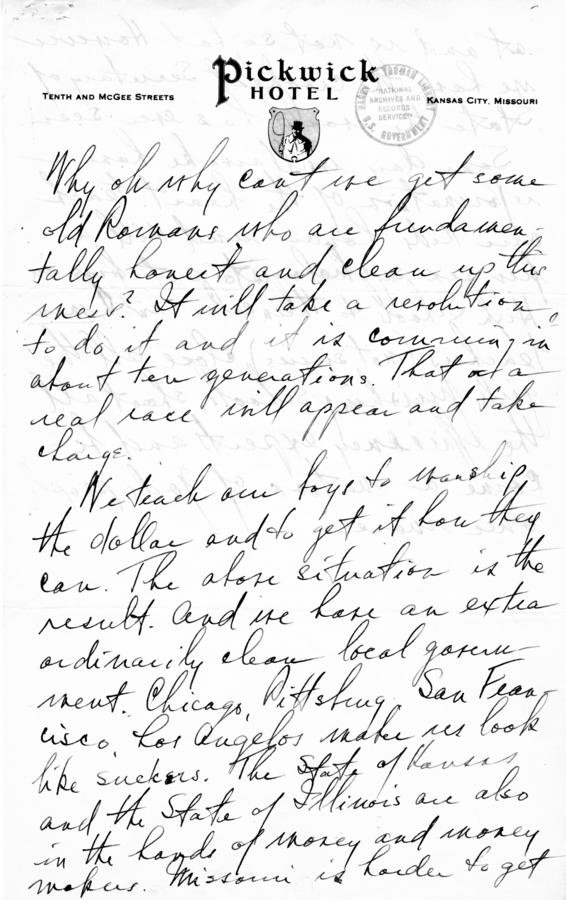 Pickwick
HOTEL
TENTH AND MCGEE STREETS
KANSAS CITY, MISSOURI
HARRY S. TRUMAN LIBRARY
NATIONAL
ARCHIVES AND
RECORDS
SERVICE
U.S. GOVERNMENT
Why oh why cant we get some
old Romans who are fundamen-
tally honest and clean up this
mess? It will take a revolution
to do it and it is comming in
about ten generations. That
real race will appear and take
charge.
We teach our boys to worship
the dollar and to get it how they
can. The above situation is the
result. And we have an extra
ordinarily clean local govern-
ment. Chicago, Pittsburg, San Fran-
cisco, Los Angelos make us look
like suckers. The State of Kansas
and the State of Illinois are also
in the hands of money and money
makers. Missouri is harder to get